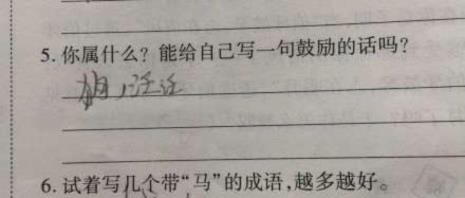 5.你属什么?能给自己写一句鼓励的话吗?
6.试着写几个带“马”的成语,越多越好。